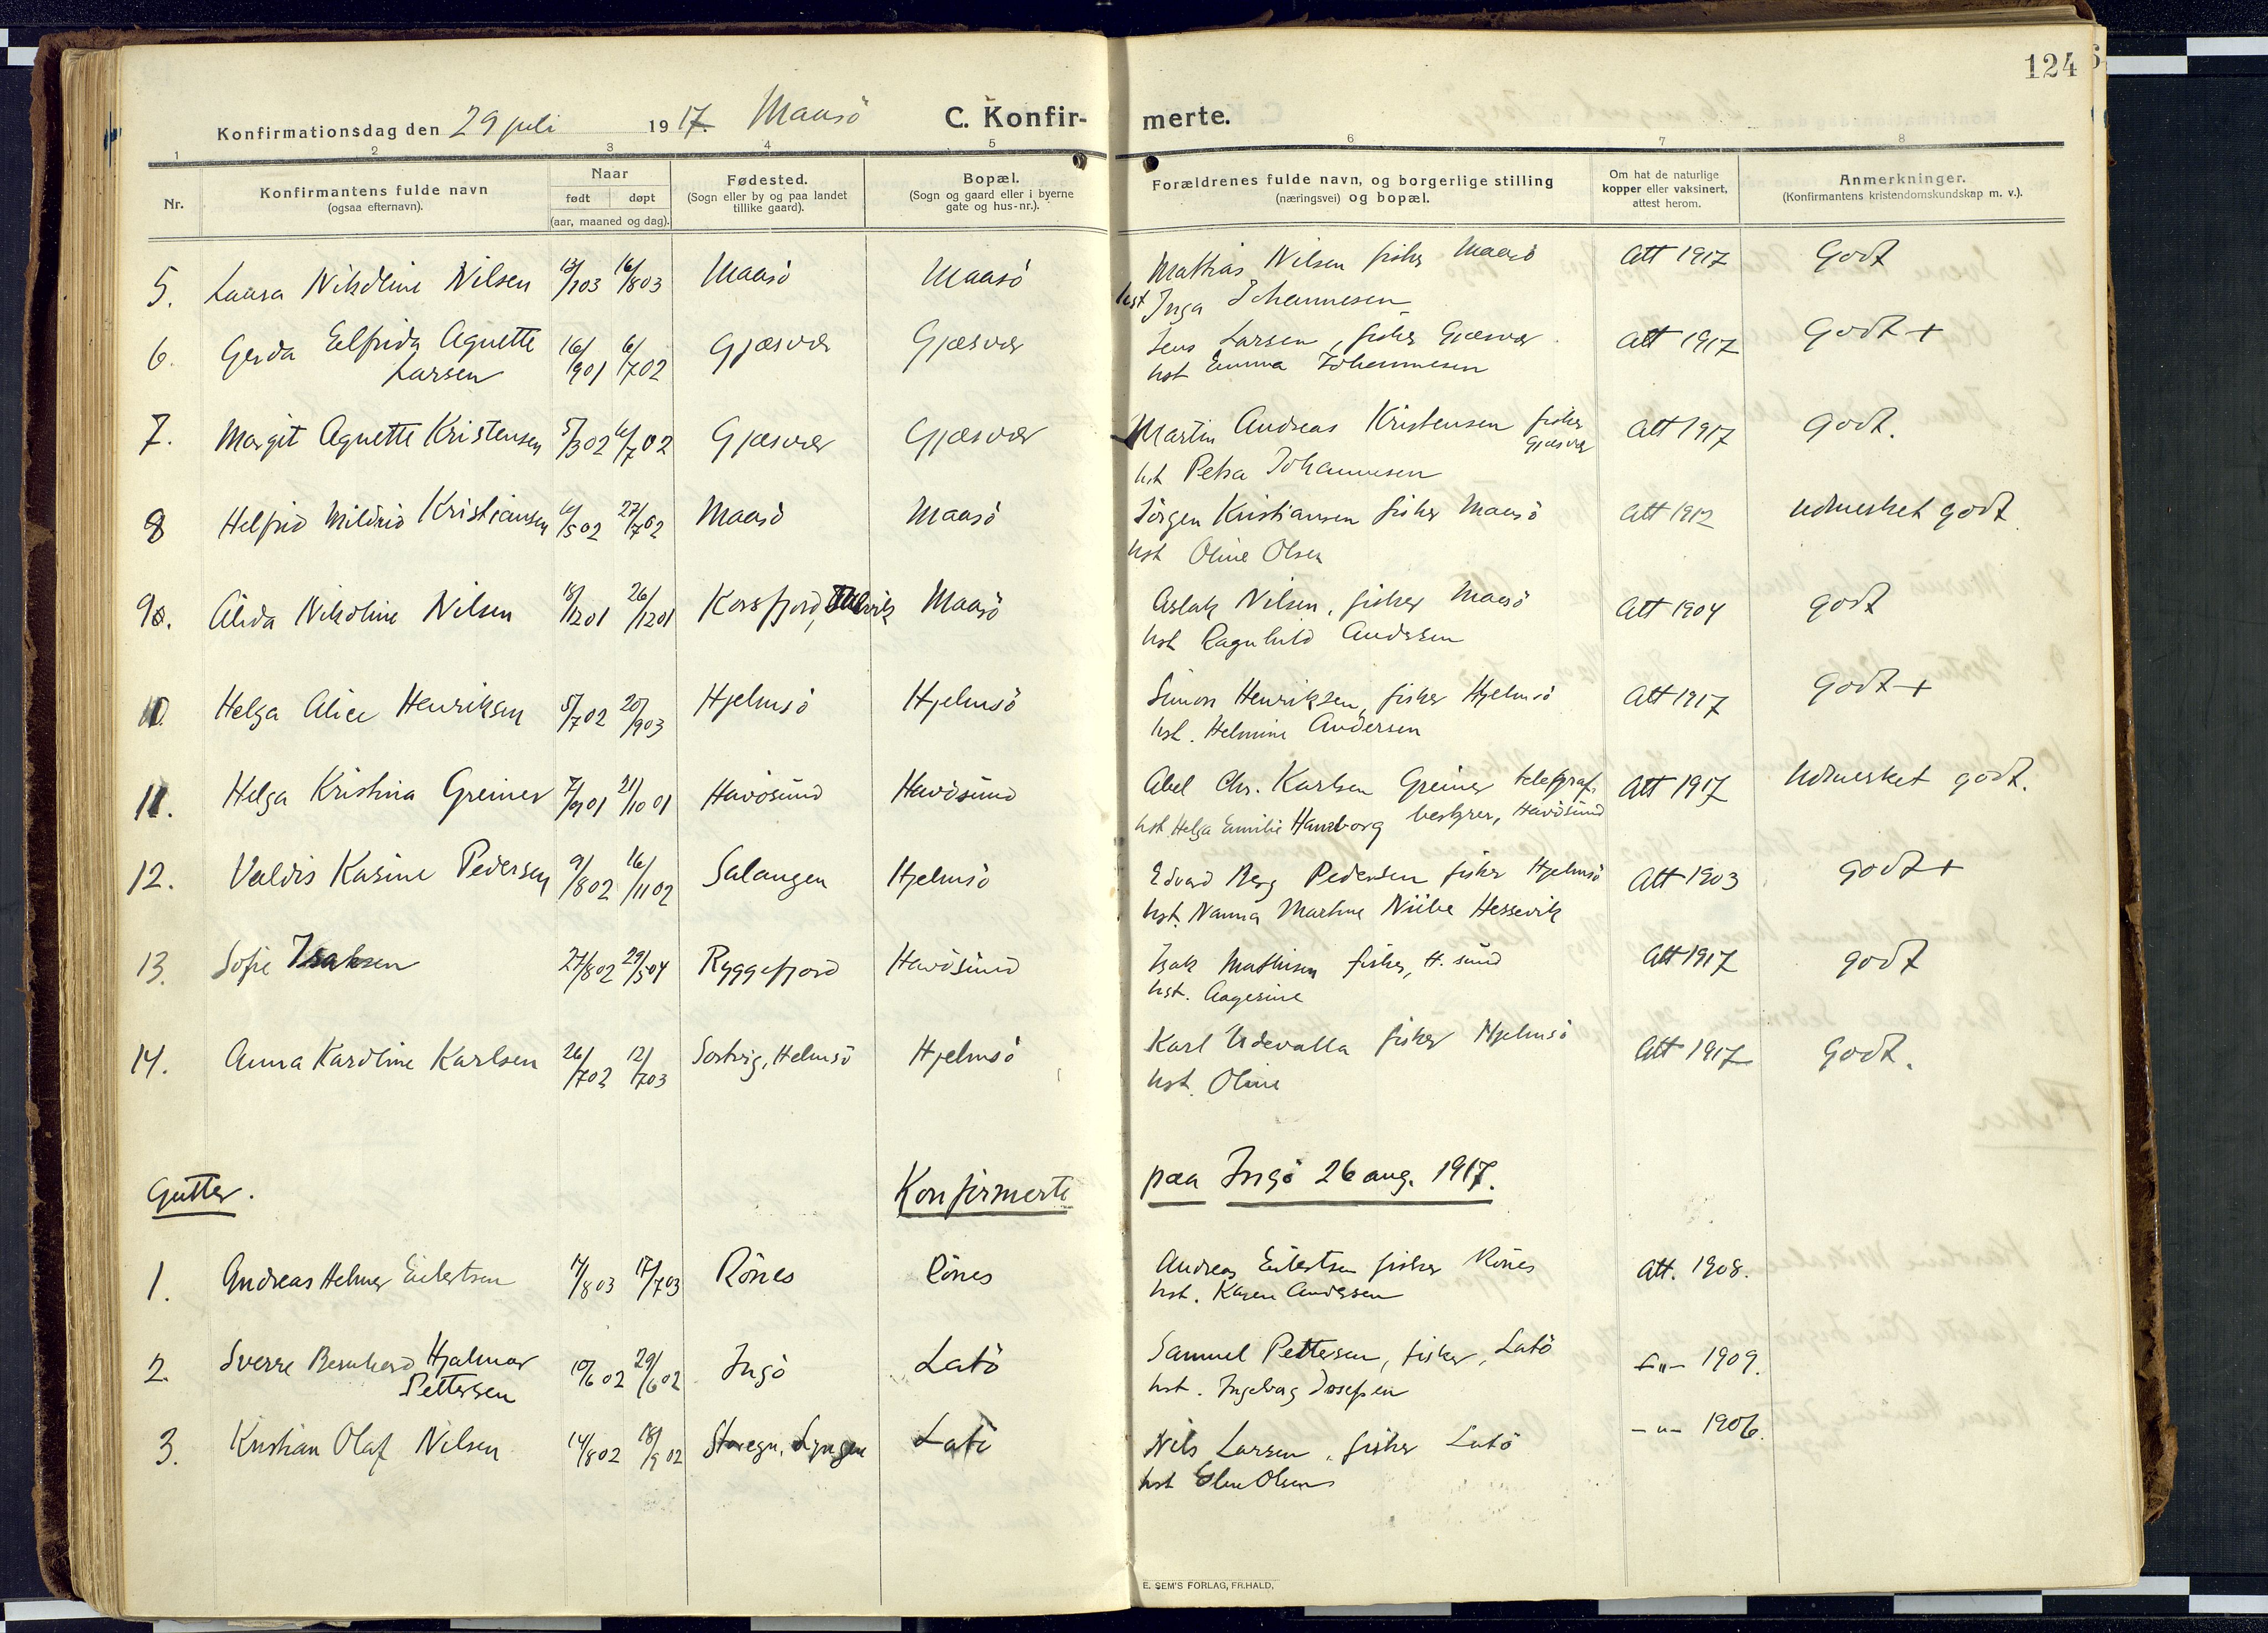 124
Konfirmationsdag den 29 juli 1917. Maasö C. Konfirmerte.
1 2 3 4 5 6 7 8
Nr.
Konfirmantens fulde navn
(ogsaa efternavn).
Naar
født døpt
(aar, maaned og dag).
Fødested.
(Sogn eller by og paa landet
tillike gaard).
Bopæl.
(Sogn og gaard eller i byerne
gate og hus-nr.).
Forældrenes fulde navn, og borgerlige stilling
(næringsvei) og bopæl.
Om hat de naturlige
kopper eller vaksinert,
attest herom.
Anmerkninger.
(Konfirmantens kristendomskundskap m. v.).
5. Laura Nikoline Nilsen 13/103 16/803 Maasö Maasö Mathias Nilsen fisker Maasö Att 1917 Godt
hst Inga Johannesen
6. Gerda Eelfrida Agnette 16/901 6/702 Gjæsvær Gjæsvær Jens Larsen, fisker Gjæsvær Att 1917 Godt +
Larsen hst Emma Johannesen
7. Margit Agnette Kristensen 5/302 6/702 Gjæsvær Gjæsvær Martin Andreas Kristensen fisker Att 1917 godt.
Gjæsvær
hst Petra Johannesen
8 Helfrid Mildrid Kristiansen 6/502 27/702 Maasö Maasö Jörgen Kristiansen fisker Maasö Att 1912 udmerket godt
hst Oline Olsen
9. Alida Nikoline Nilsen 18/1201 26/1201 Korsfjord, Talvik Maasö Aslak Nilsen, fisker Maasö Att 1904 godt
hst Ragnhild Andersen
10. Helga Alice Henriksen 5/702 20/903 Hjelmsö Hjelmsö Simon Henriksen, fisker Hjelmsö Att 1917 Godt +
hst. Helmine Andersen
11. Helga Kristina Greiner 7/901 21/1001 Havösund Havösund Abel Chr. Karlsen Greiner telegraf. Att 1917 Udmerket godt.
hst. Helga Emilie Hamborg bestyrer, Havösund
12. Valdis Kasine Pedersen 9/802 16/1102 Salangen Hjelmsö Edvard Berg Pedersen fisker Hjelmsö Att 1903 godt +
hst. Nanna Martine Hessevik
13. Sofie Isaksen 27/802 29/504 Ryggefjord Havösund Isak Mathisen fisker, H. sund Att 1917 godt
hst. Aagesine
14. Anna Karoline Karlsen 26/702 12/703 Sortvig, Helmsö Hjelmsö Karl Udevalla fisker Hjelmsö Att 1917 Godt.
hst. Oline
Gutter. Konfirmerte paa Ingö 26 aug. 1917.
1. Andreas Helmer Eilertsen 14/803 17/703 Rönes Rönes Andreas Eilertsen fisker Rönes Att. 1908.
hst. Karen Andersen
2. Sverre Bernhard Hjalmar 10/602 29/602 Ingö Latö Samuel Pettersen, fisker, Latö -"- 1909.
Pettersen hst. Ingeborg Josefsen
3. Kristian Olaf Nilsen 14/802 18/902 Lyngen Latö Nils Larsen, fisker Latö -"- 1906.
hst Olsen
E. SEM'S FORLAG, FR.HALD.